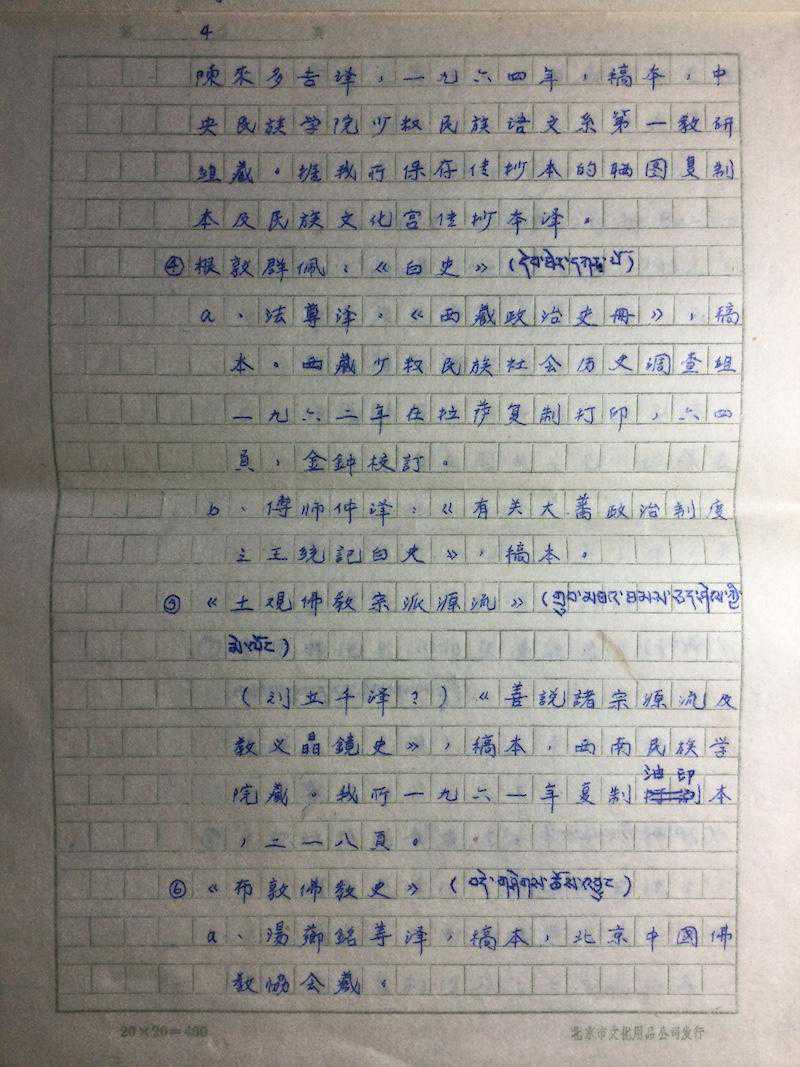 第 4 页
陳來多吉泽，一九六四年，稿本，中
央民族学院少权民族语文系第一教研
组藏。据我所保存佳抄本的晒图复制
本及民族文化宫佳抄本泽。
④根敦群佩：《白史》(དེབ་ཐེར་དཀར་པོ)
a、法尊泽：《西藏政治史册》，稿
本。西藏少权民族社会历史调查组
一九六二年在拉萨复制打印，六四
頁，金鈡校訂。
b、傅师仲泽：《有关大蕃政治制度
之王统記白史》，稿本。
⑤《土观佛教宗派源流》(གྲུབ་མཐའ་ཐམས་ཅད་ཤེལ་གྱི་
མེ་ལོང)
(刘立千泽？)《善説諸宗源流及
教义晶鏡史》，稿本，西南民族学
院藏。我所一九六一年复制油印本
，二一八頁。
⑥《布敦佛教史》(བདེ་གཤེགས་ཆོས་འབྱུང)
a、湯薌銘等泽，稿本，北京中國佛
教協会藏。
20×20=400 北京市文化用品公司发行